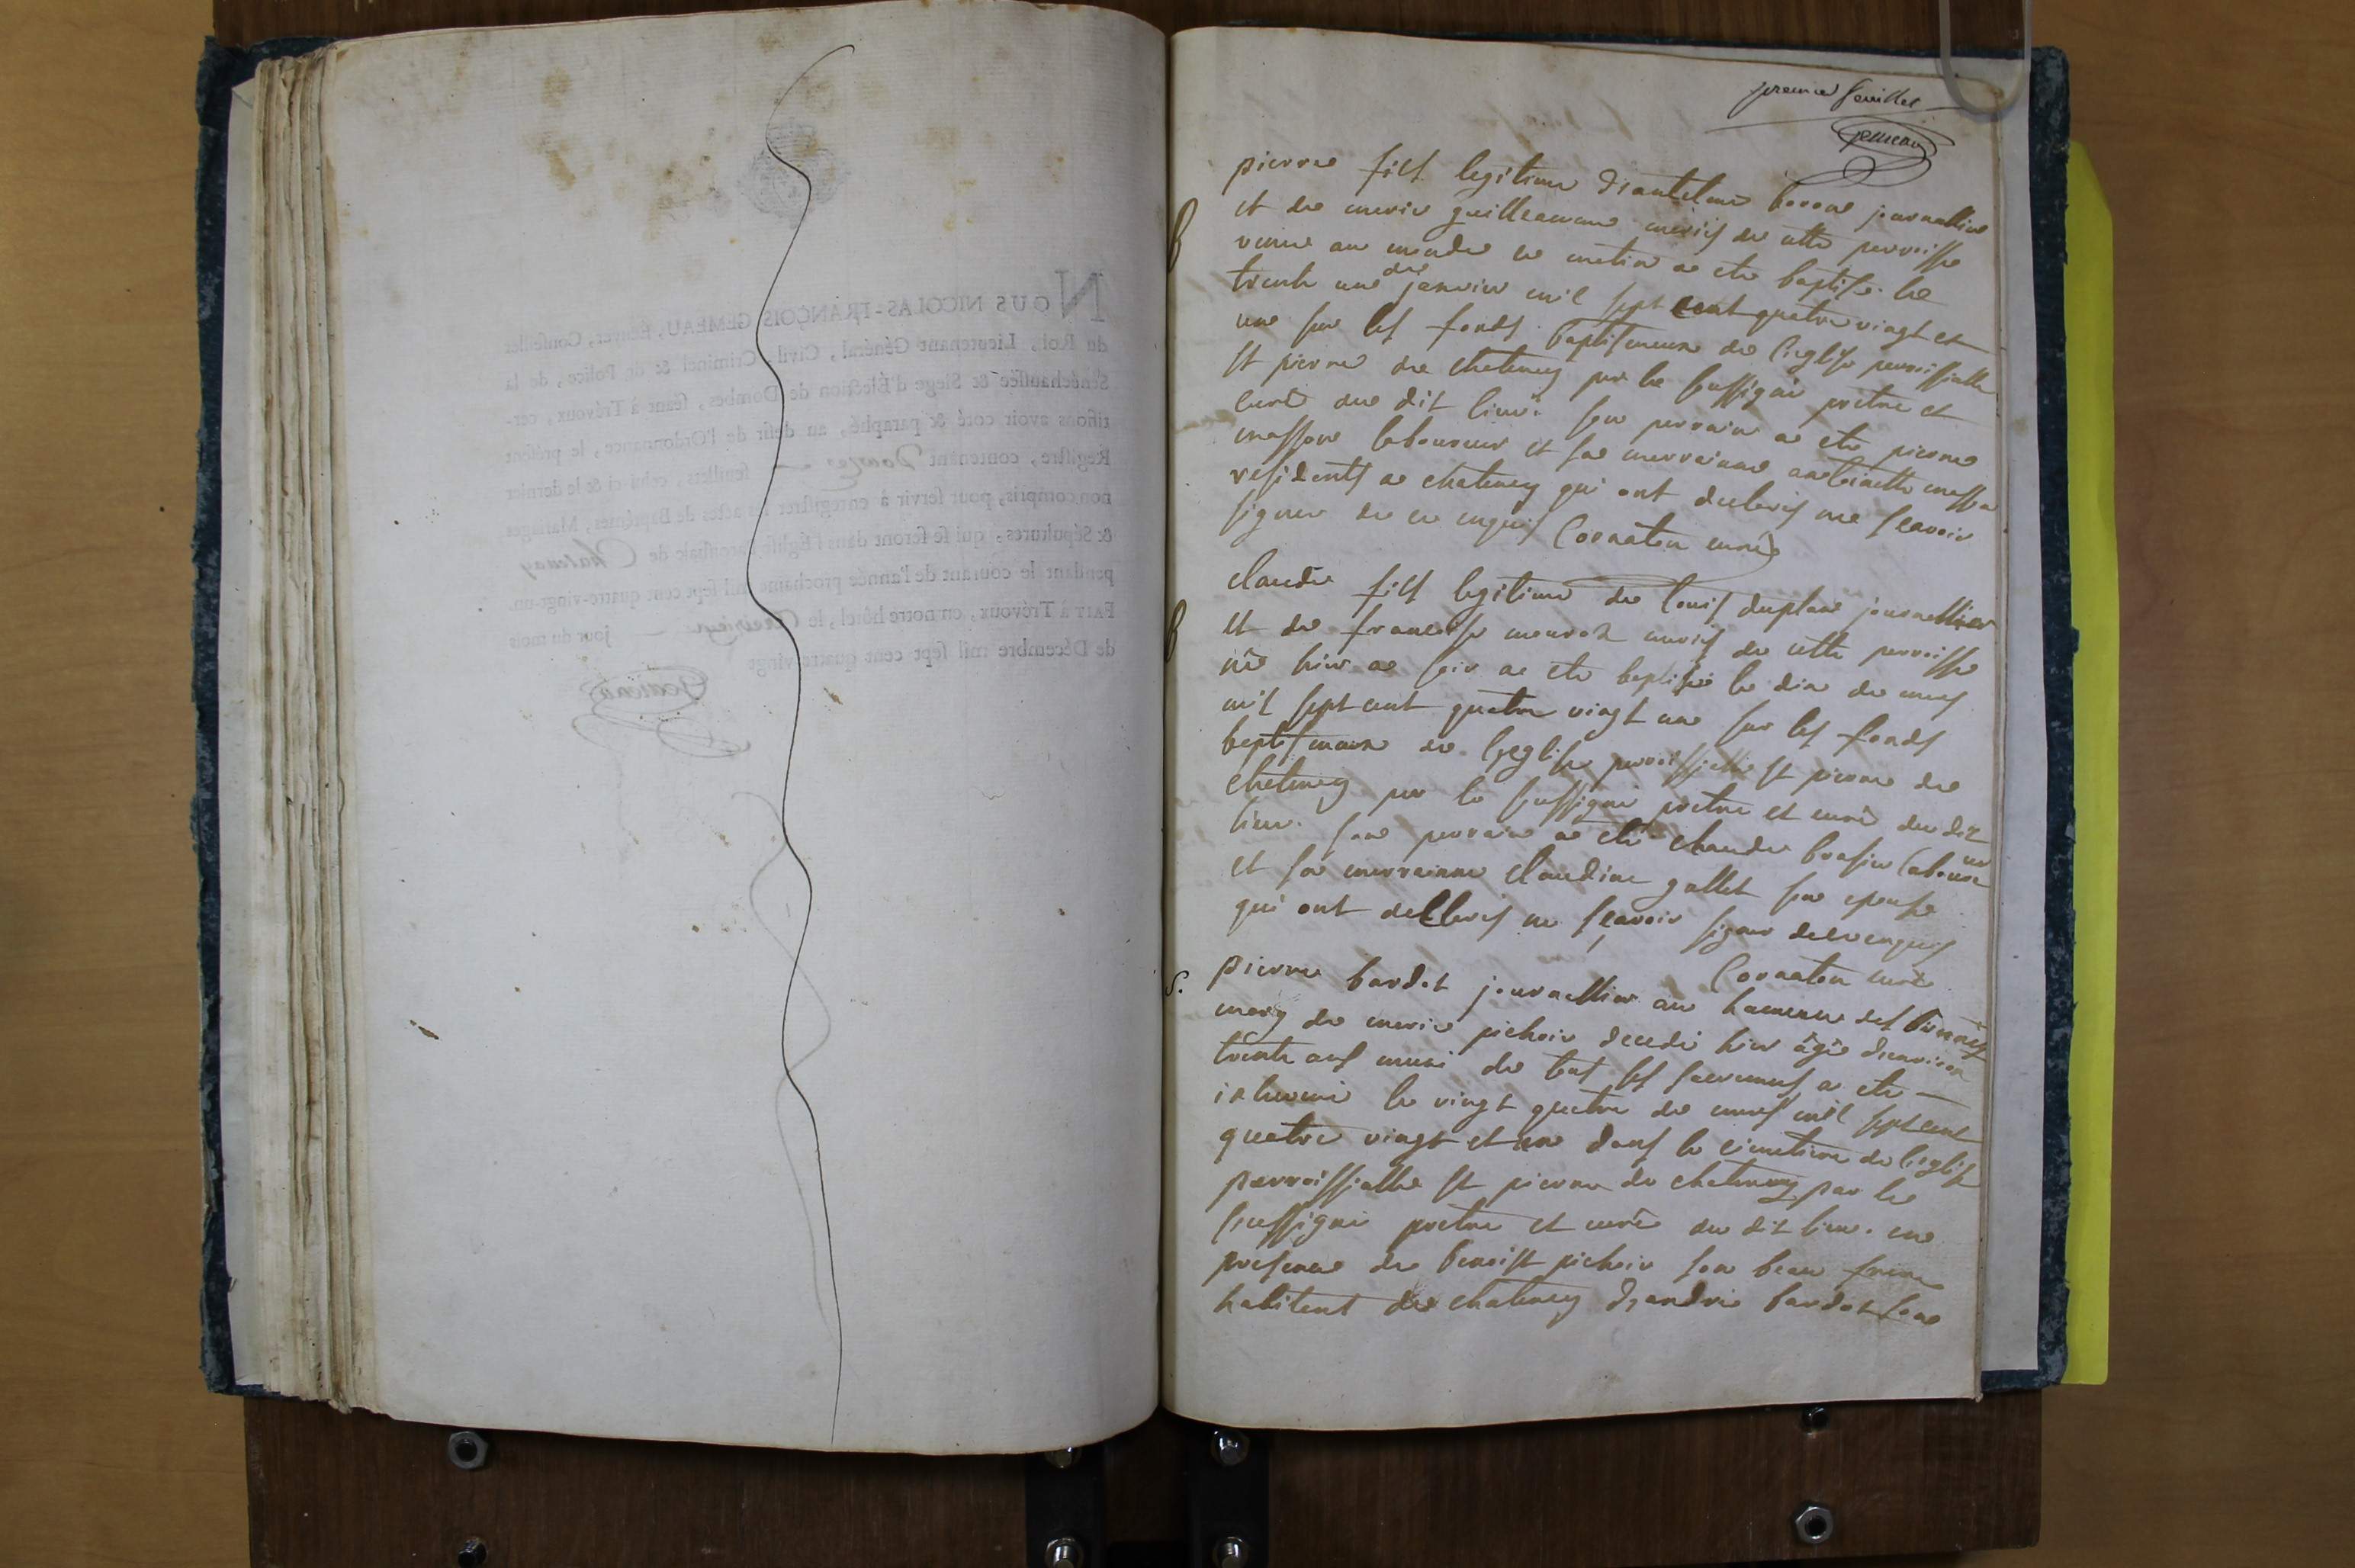 NOUS NICOLAS-FRANÇOIS GEMEAU, Écuyer, Conseiller
du Roi, Lieutenant Général, Civil, Criminel & de Police, de la
Sénéchaussée & Siege d'Élection de Dombes, séant à Trévoux, cer-
tifions avoir coté & paraphé, au desir de l'Ordonnance, le présent
Régistre, contenant Douze feuillets, celui-ci & le dernier
non compris, pour servir à enregistrer les actes de Baptêmes, Mariages
& Sépultures, qui se feront dans l'Église Paroissiale de Chatenay
pendant le courant de l'année prochaine mil sept cent quatre-vingt-un.
FAIT à Trévoux, en notre hôtel, le jour du mois
de Décembre mil sept cent quatre-vingt
Gemeau
premier feuillet
gemeau
B
pierre fils legitime d'antelme journallier
et de marie guillearme mariés de cette parroisse
venu au monde ce matin a ete baptisé le
trente une de janvier mil sept cent quatre vingt et
une sur les fonds baptismeaux de l'eglise parroissialle
st pierre de chatenay par le soussigné pretre et
curé du dit lieu. son parrain a ete pierre
masson laboureur et sa marrainne antoinette masson
residents a chatenay qui ont declarés ne scavoir
signer de ce enquis Cornaton curé
B
claude fils legitime de louis duplan journallier
et de francoise mariés de cette parroisse
né hier a soir a ete baptisé le dix de mars
mil sept cent quatre vingt une sur les fonds
baptismeaux de l'eglise parroissialle st pierre de
chatenay par le soussigné pretre et curé du dit
lieu. son parrain a eté claude brasier laboureur
et sa marrainne claudine gallet son epouse
qui ont declarés ne scavoir signer de ce enquis
Cornaton curé
S.
pierre bardet journallier au hameau des
mary de marie pichoir decedé hier âgé d'environ
trente ans muni de tous les sacremens a ete
inhumé le vingt quatre de mars mil sept cent
quatre vingt et une dans le cimetiere de l'eglise
parroissialle st pierre de chatenay par le
soussigné pretre et curé du dit lieu. en
presence de benoist pichoir son beau frere
habitent de chatenay d'andré bardet son